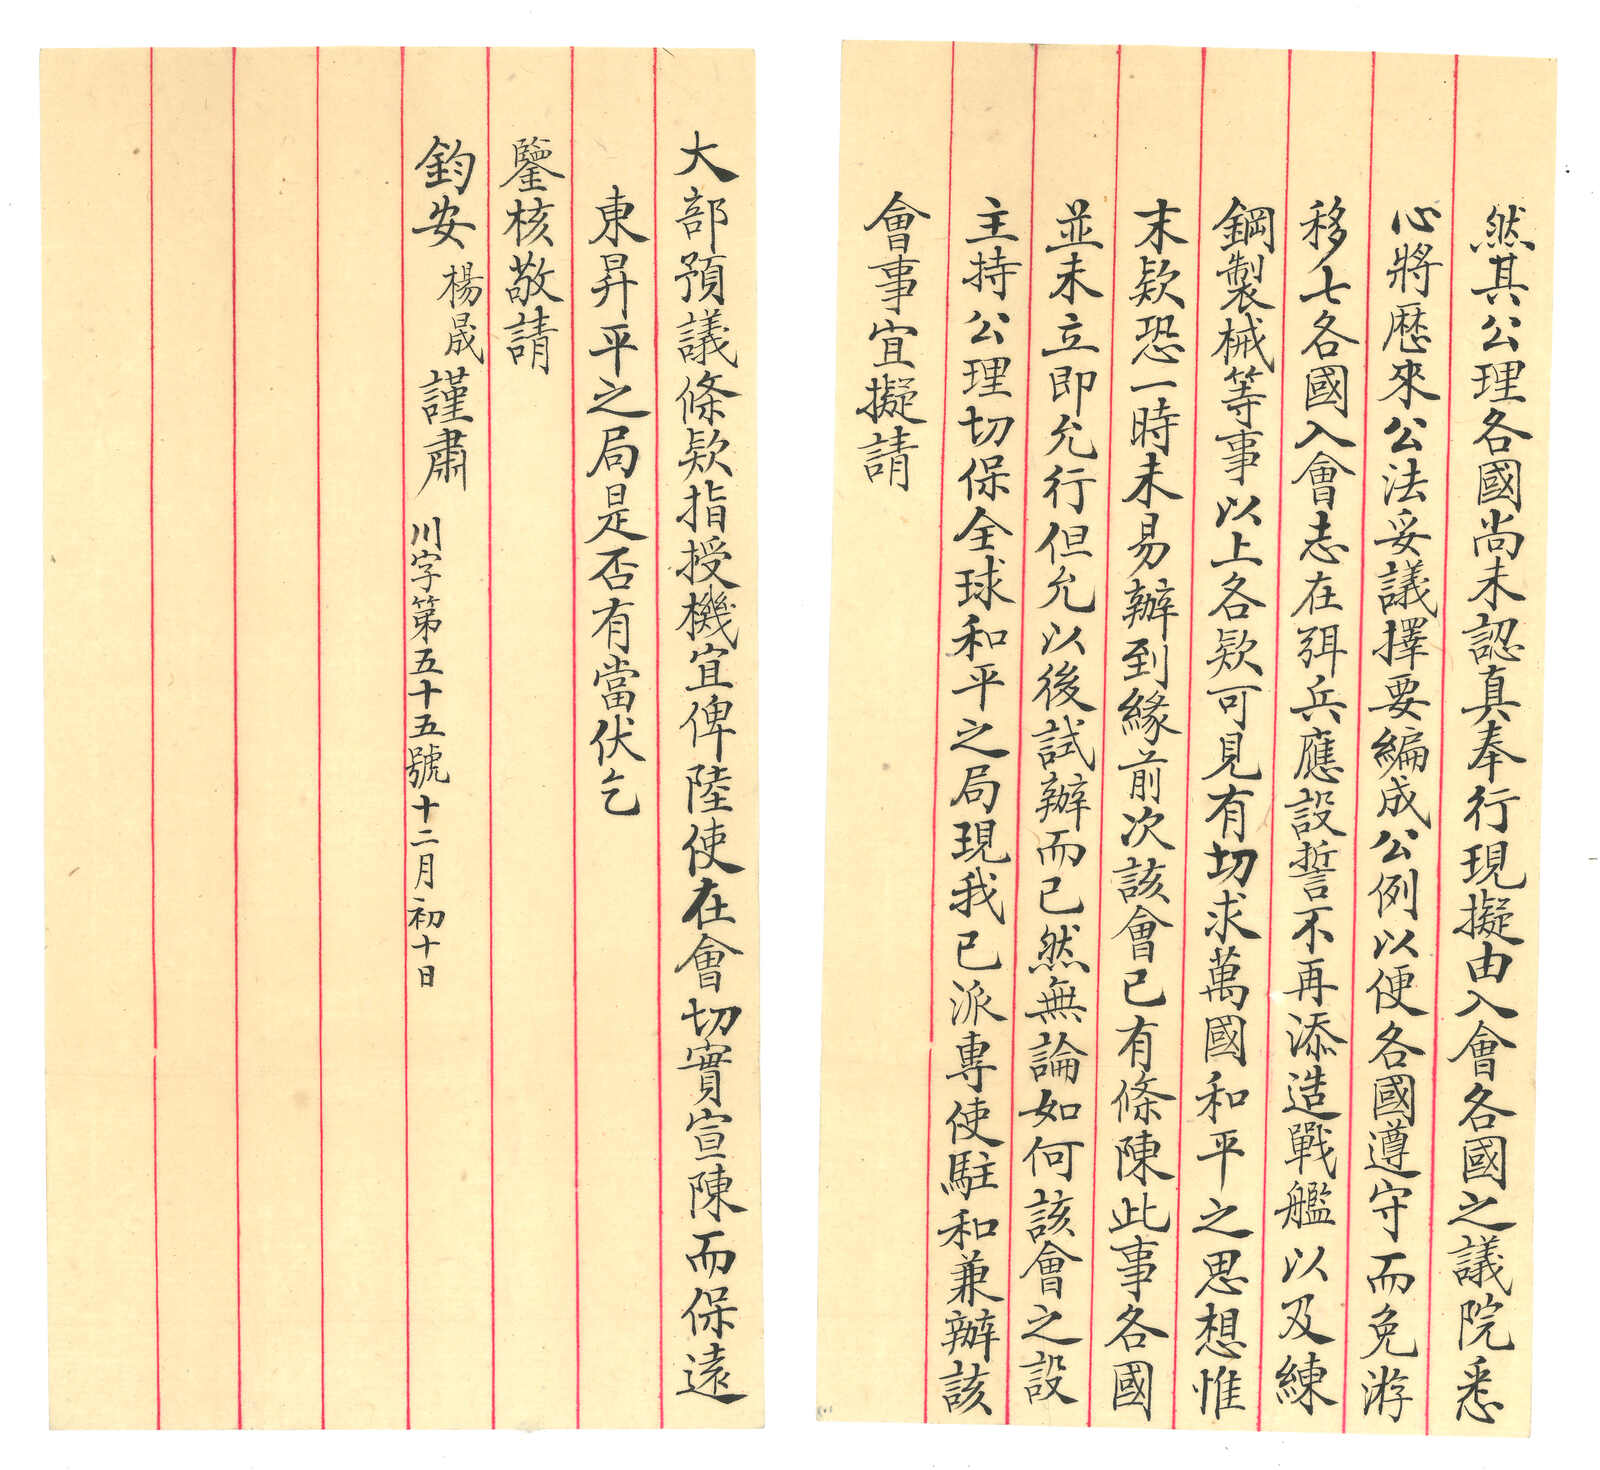 然其公理各國尚未認真奉行現擬由入會各國之議院悉
心將歷來公法妥議擇要編成公例以便各國遵守而免游
移七各國入會志在弭兵應設誓不再添造戰艦以及練
鋼製械等事以上各欵可見有切求萬國和平之思想惟
末欵恐一時未易辦到緣前次該會已有條陳此事各國
並未立即允行但允以後試辦而已然無論如何該會之設
主持公理切保全球和平之局現我已派專使駐和兼辦該
會事宜擬請
大部預議條欵指授機宜俾陸使在會切實宣陳而保遠
東昇平之局是否有當伏乞
鑒核敬請
鈞安 楊晟 謹肅 川字第五十五號十二月初十日